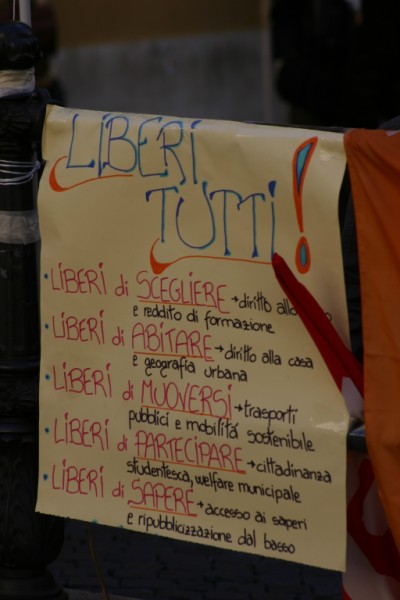 LIBERI
TUTTI!
• LIBERI di SCEGLIERE → diritto allo
e reddito di formazione
• LIBERI di ABITARE → diritto alla casa
e geografia urbana
• LIBERI di MUOVERSI → trasporti
pubblici e mobilitá sostenibile
• LIBERI di PARTECIPARE → cittadinanza
studentesca, welfare municipale
• LIBERI di SAPERE → accesso ai saperi
e ripubblicizzazione dal basso